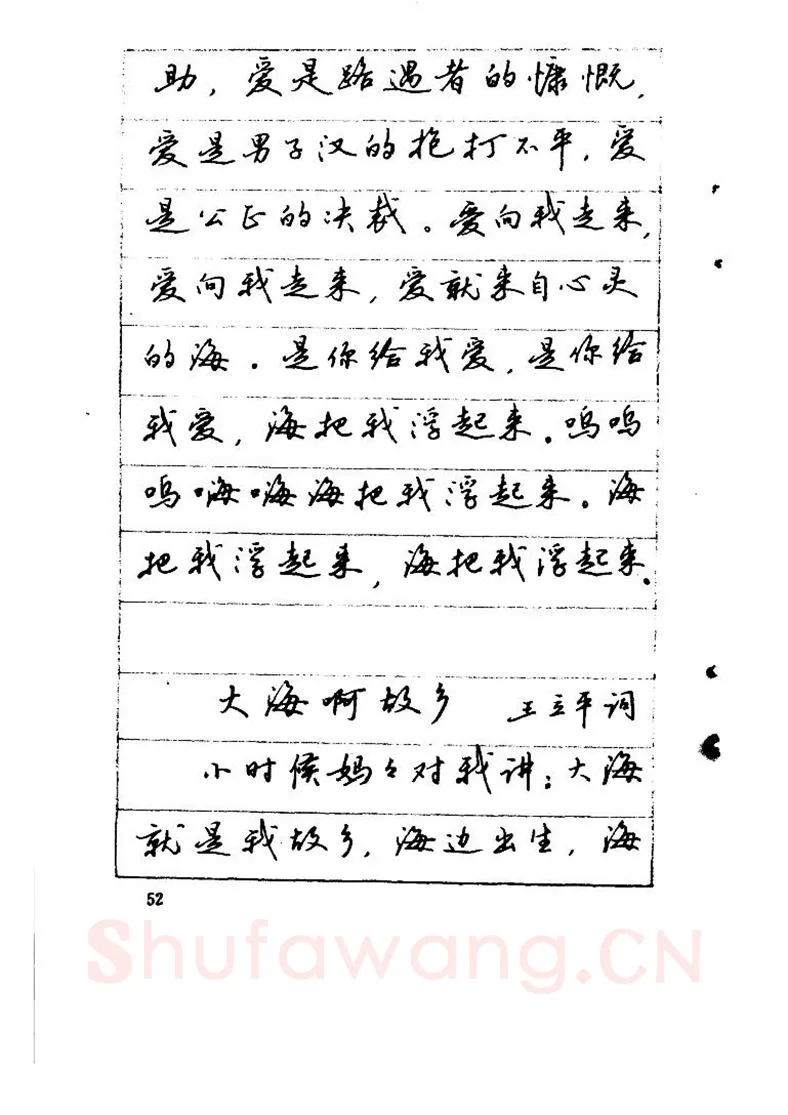 助，爱是路遇者的慷慨，
爱是男子汉的抱打不平，爱
是公正的决裁。爱向我走来，
爱向我走来，爱就来自心灵
的海。是你给我爱，是你给
我爱，海把我浮起来。呜呜
呜嗨嗨海把我浮起来。海
把我浮起来，海把我浮起来。
大海啊故乡 王立平词
小时候妈々对我讲：大海
就是我故乡，海边出生，海
52
Shufawang.CN